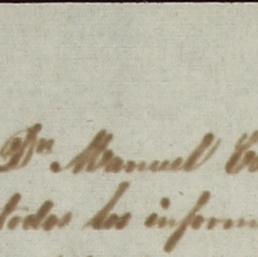 Dn Manuel
todos los inform